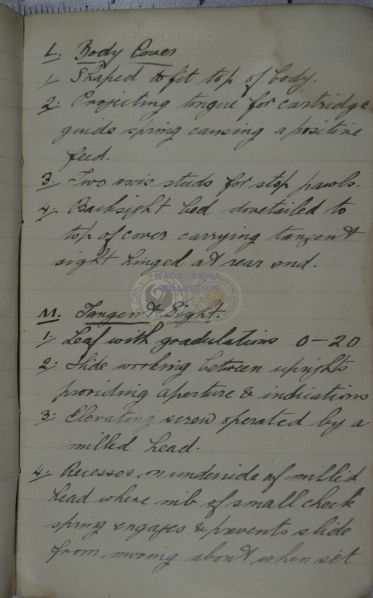 L. Body Cover
1. Shaped to fit top of body.
2. Projecting tongue for cartridge
guide spring causing a positive
feed.
3. Two axis studs for stop pawls.
4. Backsight bed dovetailed to
top of cover carrying tangent
sight hinged at rear end.
WAOS - AMWA
COLLECTION
M. Tangent Sight.
1. Leaf with graduations 0-20
2. Slide working between uprights
providing aperture & indications
3. Elevating screw operated by a
milled head.
4. Recesses on underside of mille'd
head where nib of small check
spring engages & prevents slide
from moving about when set